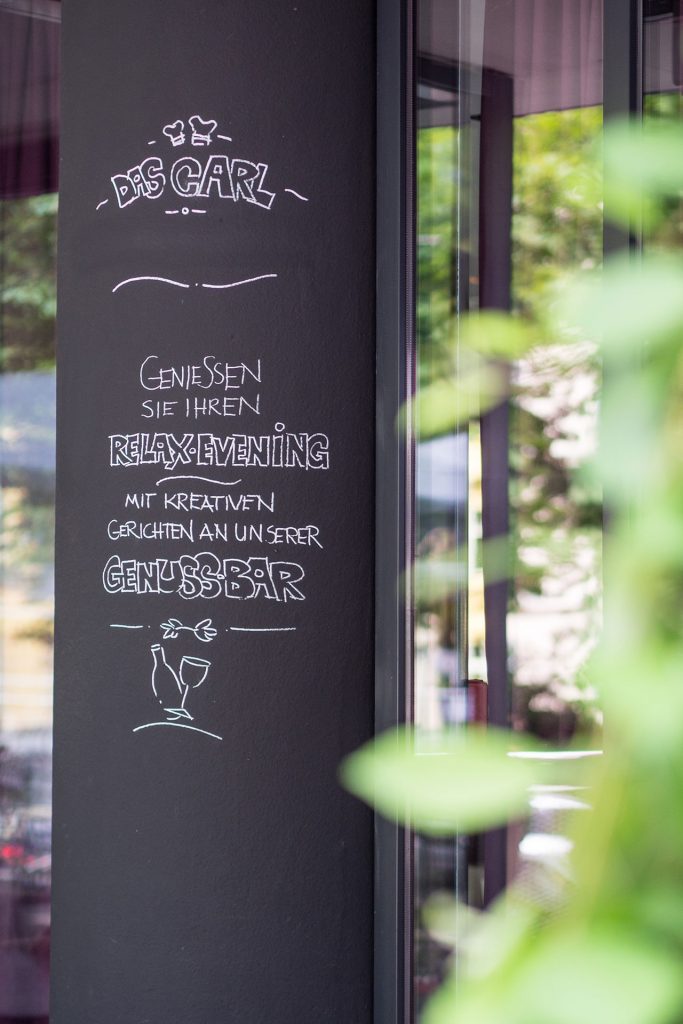 DAS CARL
GENIESSEN
SIE IHREN
RELAX·EVENING
MIT KREATIVEN
GERICHTEN AN UNSERER
GENUSS·BAR